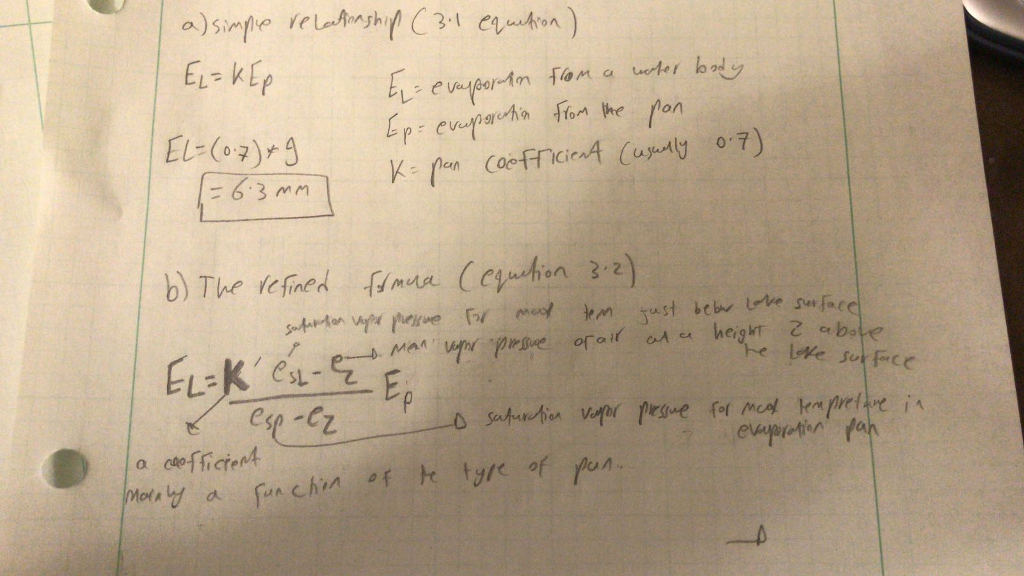 a) simple relationship (3.1 equation)
EL = KEp
EL = evaporation from a water body
Ep = evaporation from the pan
K = pan coefficient (usually 0.7)
EL = (0.7) * 9
= 6.3 mm
b) The refined formula (equation 3.2)
saturation vapor pressure for max tem just below Lake surface
mean vapor pressure of air at a height Z above
the lake surface
EL = K' esL - ez / esp - ez Ep
saturation vapor pressure for max tempreture in
evaporation pan
a coefficient
mainly a function of te type of pan..